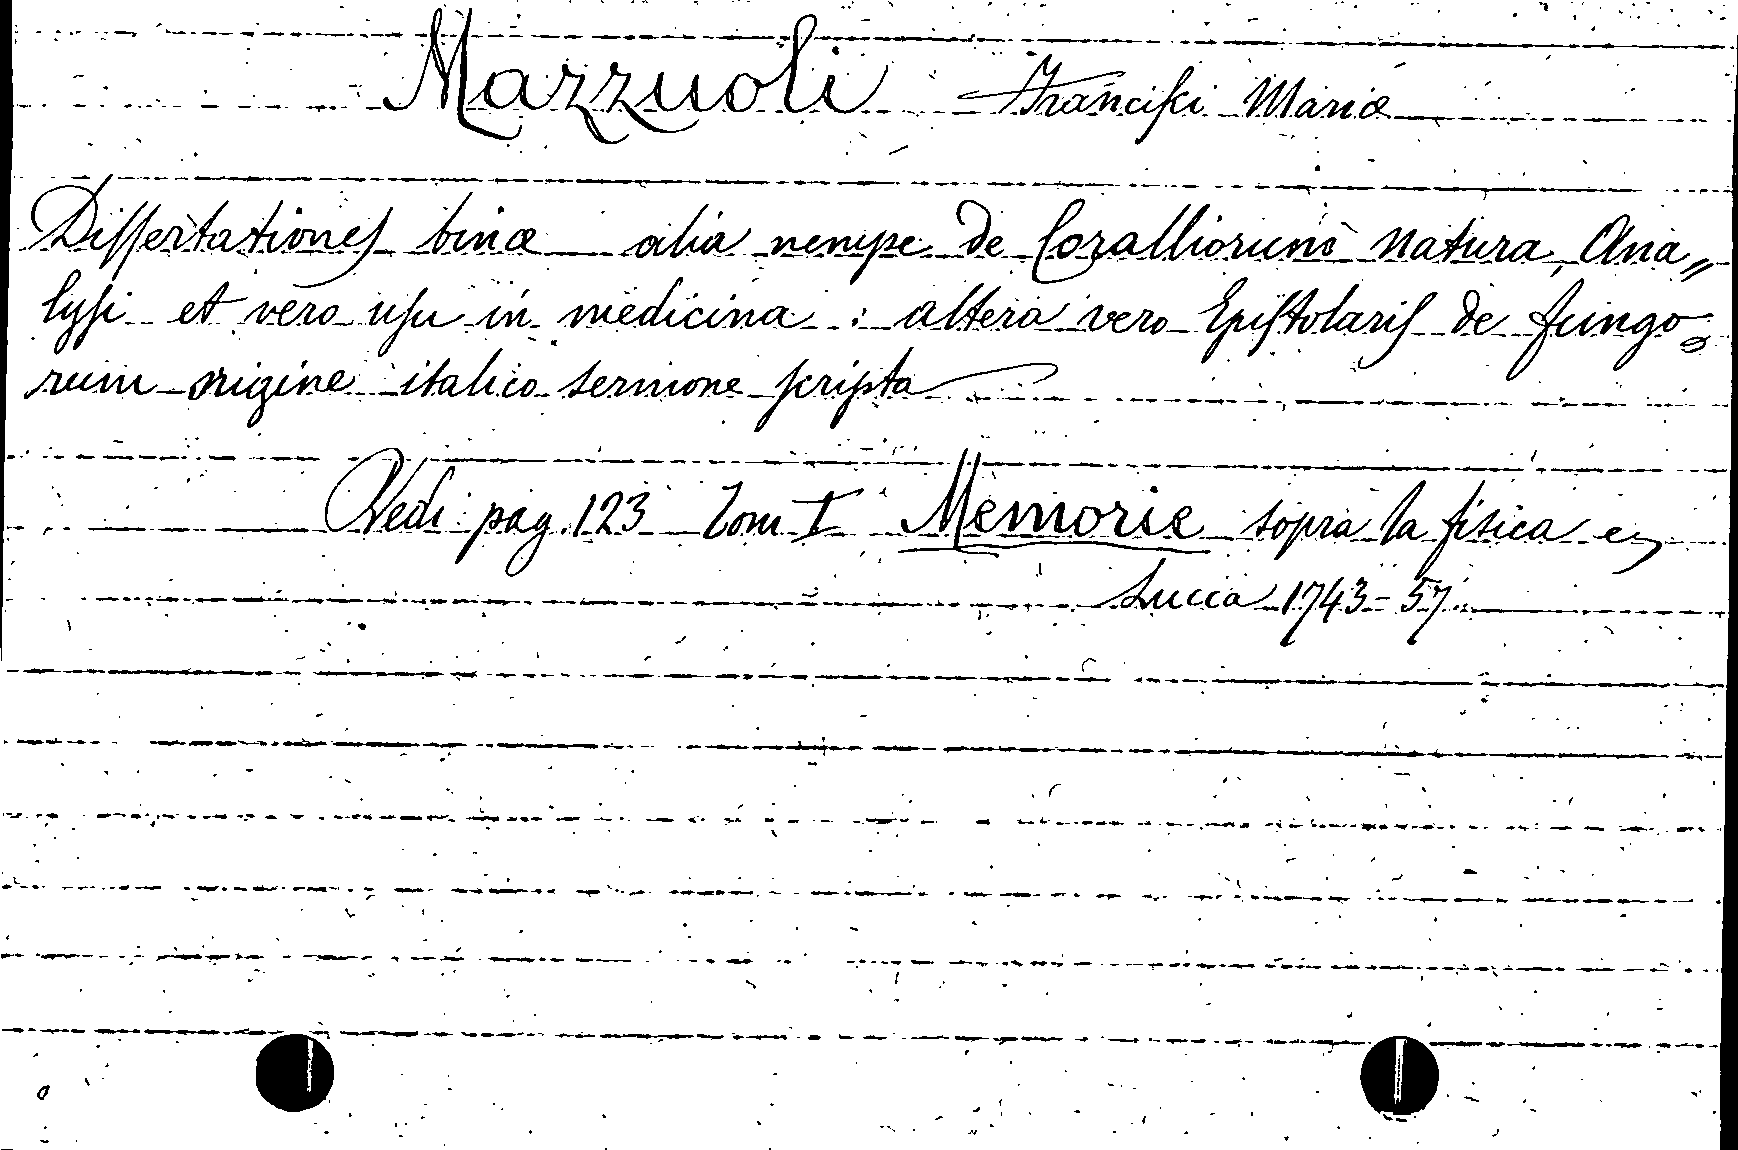 Mazzuoli Franciſci Mariæ
Diſſertationeſ binæ alia nempe de Coralliorum Natura, Ana„
lyſi et vero uſu in medicina : altera vero Epiſtolariſ de fungo=
rum origine italico sermone ſcripta
Vedi pag. 123 Tom I Memorie sopra la fisica
Lucca 1743-57